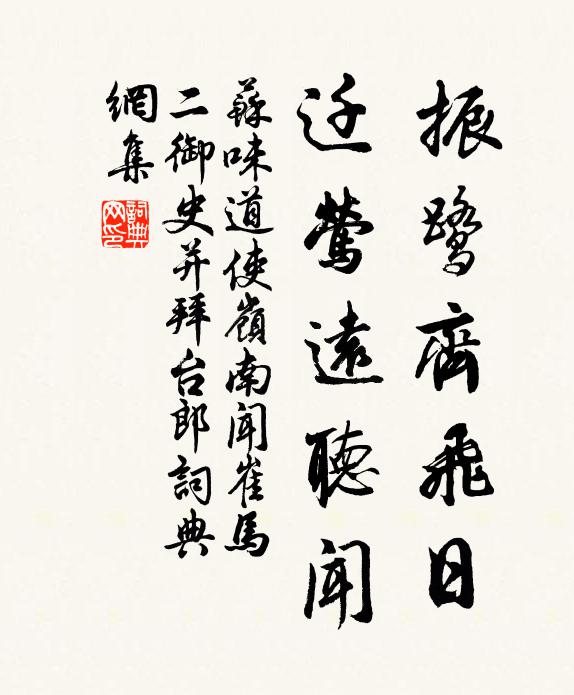 振鹭齊飛日
迁鶯遠聽聞
蘇味道使嶺南聞崔馬
二御史并拜台郎詞典
網集
詞典
网印